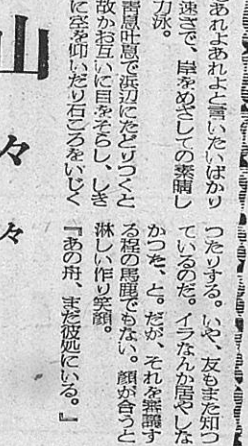 あれよあれよと言いたいばかり
速さで、岸をめざしての素晴し
力泳。
青息吐息で浜辺にたどりつくと
故かお互いに目をそらし、しき
に空を仰いだり石ころをいじく
つたりする。いや、友もまた知つ
ているのだ。イラなんか居やしな
かつた、と。だが、それを議す
る程の馬鹿でもない。顔が合うと
淋しい作り笑顔。
『あの舟、まだ彼処にいる。』
山々々